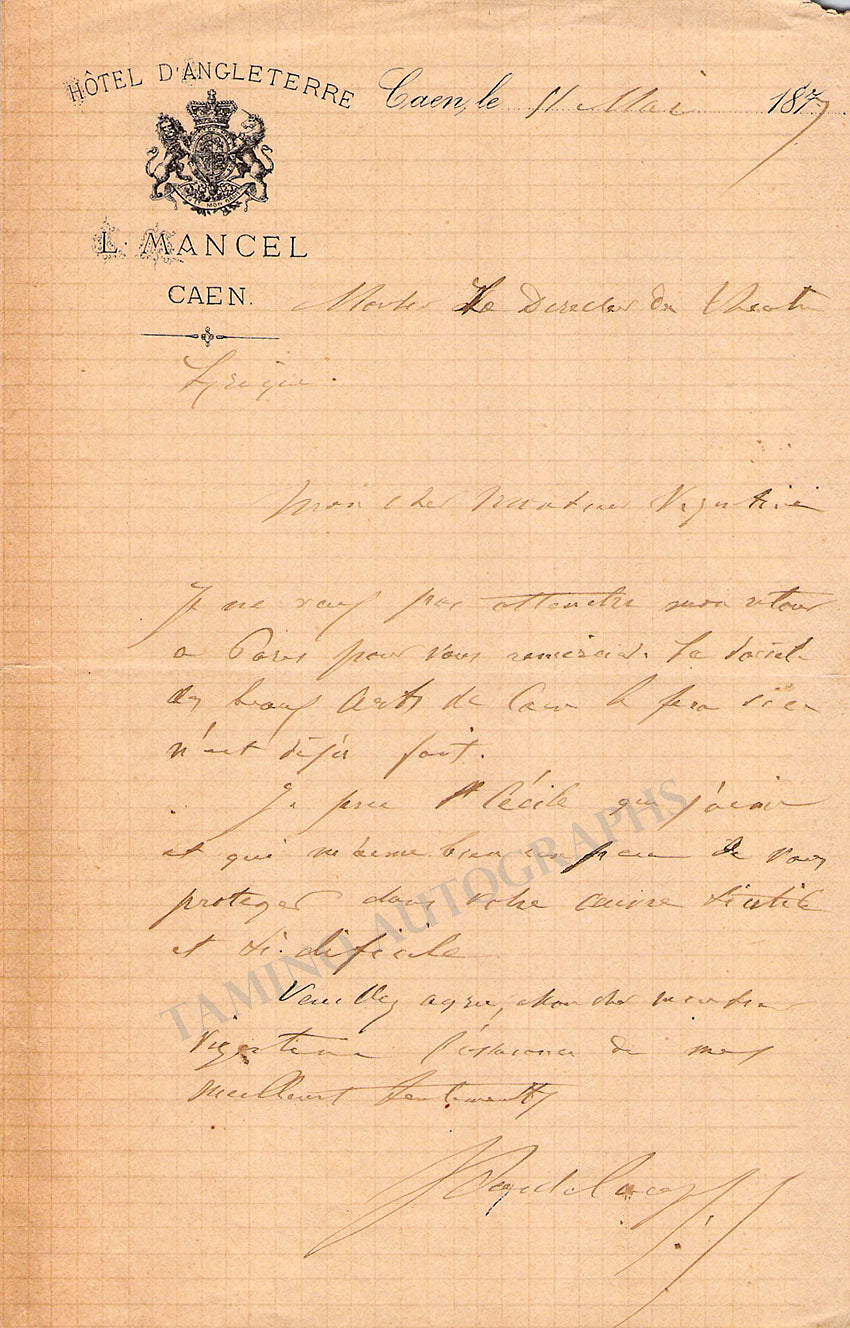 HÔTEL D'ANGLETERRE
Caen, le 11 Mai 1877
L. MANCEL
CAEN.
Le Directeur du Theatre
Lyrique.
Mon cher Monsieur
Je ne veux pas attendre mon retour
a Paris pour vous remercier. La Société
des beaux Arts de Caen le fera si ce
n'est déjà fait.
Je prie Ste Cécile que j'aime
et qui m'aime bien un peu de vous
proteger dans votre œuvre si utile
et si dificile
Veuillez agréer, Mon cher monsieur
l'assurance de mes
meilleurs sentiments
Pasdeloup
TAMINO AUTOGRAPHS